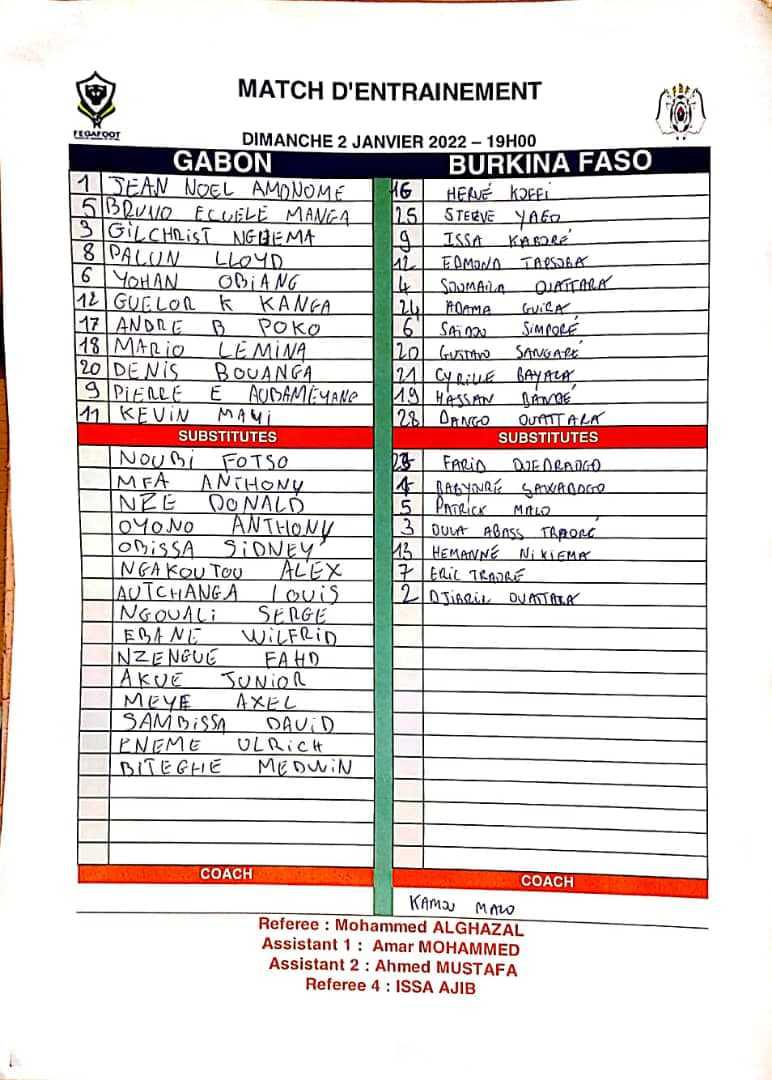 MATCH D'ENTRAINEMENT
FEGAFOOT
FBF
DIMANCHE 2 JANVIER 2022 – 19H00
GABON
1 JEAN NOEL AMONOME
5 BRUNO ECUELE MANGA
3 GILCHRIST NGUEMA
8 PALUN LLOYD
6 YOHAN OBIANG
12 GUELOR K KANGA
17 ANDRE B POKO
18 MARIO LEMINA
20 DENIS BOUANGA
9 PIERRE E AUBAMEYANG
11 KEVIN MAYI
SUBSTITUTES
NOUBI FOTSO
MFA ANTHONY
NZE DONALD
OYONO ANTHONY
OBISSA SIDNEY
NGAKOUTOU ALEX
AUTCHANGA LOUIS
NGOUALI SERGE
EBANE WILFRID
NZENGUE FAHD
AKUE JUNIOR
MEYE AXEL
SAMBISSA DAVID
ENEME ULRICH
BITEGHE MEDWIN
COACH
BURKINA FASO
16 HERVÉ KOFFI
25 STEEVE YAGO
9 ISSA KABORÉ
12 EDMOND TAPSOBA
4 SOUMAILA OUATTARA
24 ADAMA GUIRA
6 SAIDOU SIMPORÉ
20 GUSTAVO SANGARÉ
21 CYRILLE BAYALA
19 HASSAN BANDÉ
28 DANGO OUATTARA
SUBSTITUTES
FARID OUEDRAOGO
SAWADOGO
5 PATRICK MALO
3 OULA ABASS TRAORÉ
13 HEMANNÉ NIKIEMA
7 ERIC TRAORÉ
2 DJIBRIL OUATTARA
COACH
KAMOU MALO
Referee : Mohammed ALGHAZAL
Assistant 1 : Amar MOHAMMED
Assistant 2 : Ahmed MUSTAFA
Referee 4 : ISSA AJIB